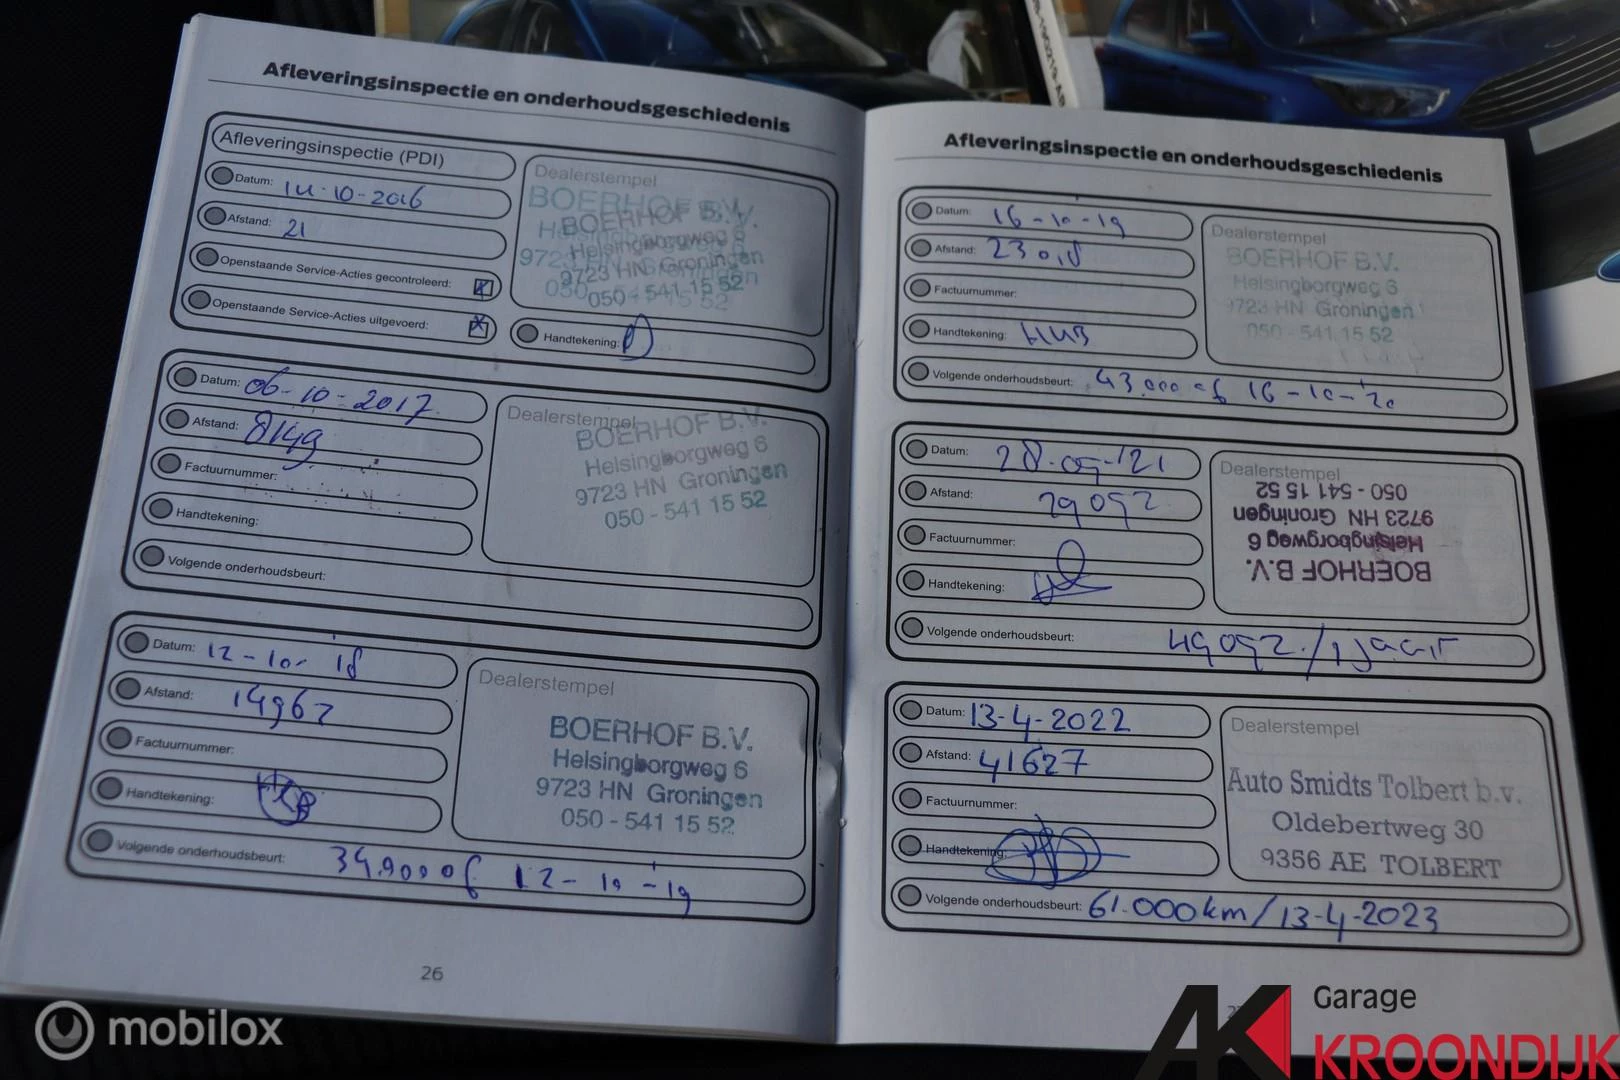 Afleveringsinspectie en onderhoudsgeschiedenis
Afleveringsinspectie (PDI)
Datum: 14-10-2016
Afstand: 21
Openstaande Service-Acties gecontroleerd: X
Openstaande Service-Acties uitgevoerd: X
Dealerstempel
BOERHOF B.V.
Helsingborgweg 6
9723 HN Groningen
050 - 541 15 52
Handtekening:
Datum: 06-10-2017
Afstand: 8149
Factuurnummer:
Handtekening:
Volgende onderhoudsbeurt:
Dealerstempel
BOERHOF B.V.
Helsingborgweg 6
9723 HN Groningen
050 - 541 15 52
Datum: 12-10-'18
Afstand: 14962
Factuurnummer:
Handtekening:
Volgende onderhoudsbeurt: 34.900 of 12-10-'19
Dealerstempel
BOERHOF B.V.
Helsingborgweg 6
9723 HN Groningen
050 - 541 15 52
26
Afleveringsinspectie en onderhoudsgeschiedenis
Datum: 16-10-'19
Afstand: 23018
Factuurnummer:
Handtekening:
Volgende onderhoudsbeurt: 43.000 of 16-10-'20
Dealerstempel
BOERHOF B.V.
Helsingborgweg 6
9723 HN Groningen
050 - 541 15 52
Datum: 28-09-'21
Afstand: 29092
Factuurnummer:
Handtekening:
Volgende onderhoudsbeurt: 49092 / 1 jaar
Dealerstempel
BOERHOF B.V.
Helsingborgweg 6
9723 HN Groningen
050 - 541 15 52
Datum: 13-4-2022
Afstand: 41627
Factuurnummer:
Handtekening:
Volgende onderhoudsbeurt: 61.000km/13-4-2023
Dealerstempel
Auto Smidts Tolbert b.v.
Oldebertweg 30
9356 AE TOLBERT
mobilox
AK Garage
KROONDIJK